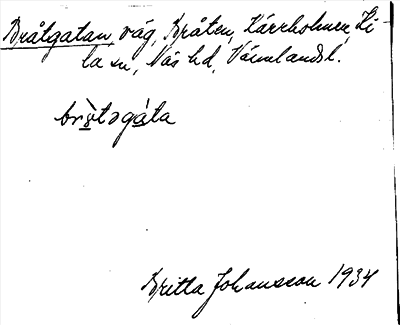 Bråtgatan, väg, Bråten, Kärrholmen, Ki-
la sn, Näs hd, Värmlandsl.
Britta Johansson 1934